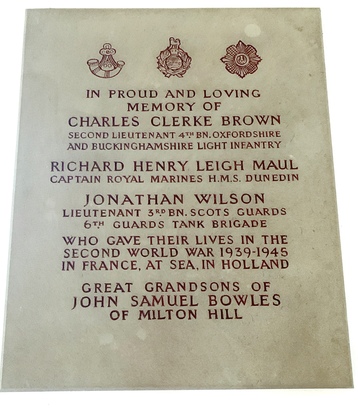 IN PROUD AND LOVING
MEMORY OF
CHARLES CLERKE BROWN
SECOND LIEUTENANT 4TH BN. OXFORDSHIRE
AND BUCKINGHAMSHIRE LIGHT INFANTRY
RICHARD HENRY LEIGH MAUL
CAPTAIN ROYAL MARINES H.M.S. DUNEDIN
JONATHAN WILSON
LIEUTENANT 3RD BN. SCOTS GUARDS
6TH GUARDS TANK BRIGADE
WHO GAVE THEIR LIVES IN THE
SECOND WORLD WAR 1939-1945
IN FRANCE, AT SEA, IN HOLLAND
GREAT GRANDSONS OF
JOHN SAMUEL BOWLES
OF MILTON HILL